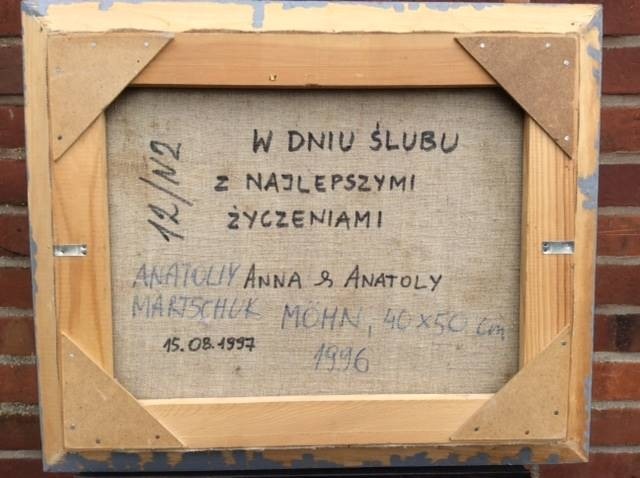 12/N2
W DNIU ŚLUBU
Z NAJLEPSZYMI
ŻYCZENIAMI
ANATOLIY ANNA & ANATOLY
MARTSCHUK MÖHN, 40x50 cm
15.08.1997 1996